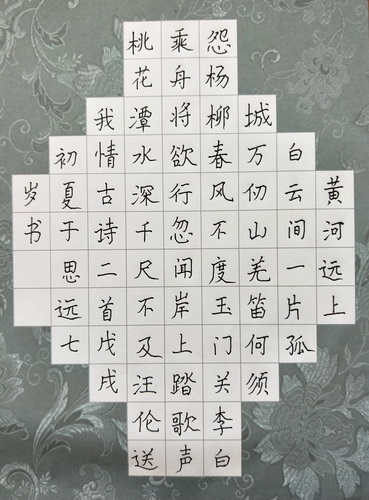 黄河远上
白云间一片孤
城万仞山羌笛何须
怨杨柳春风不度玉门关李白
乘舟将欲行忽闻岸上踏歌声
桃花潭水深千尺不及汪伦送
我情古诗二首戊戌
初夏于思远七
岁书